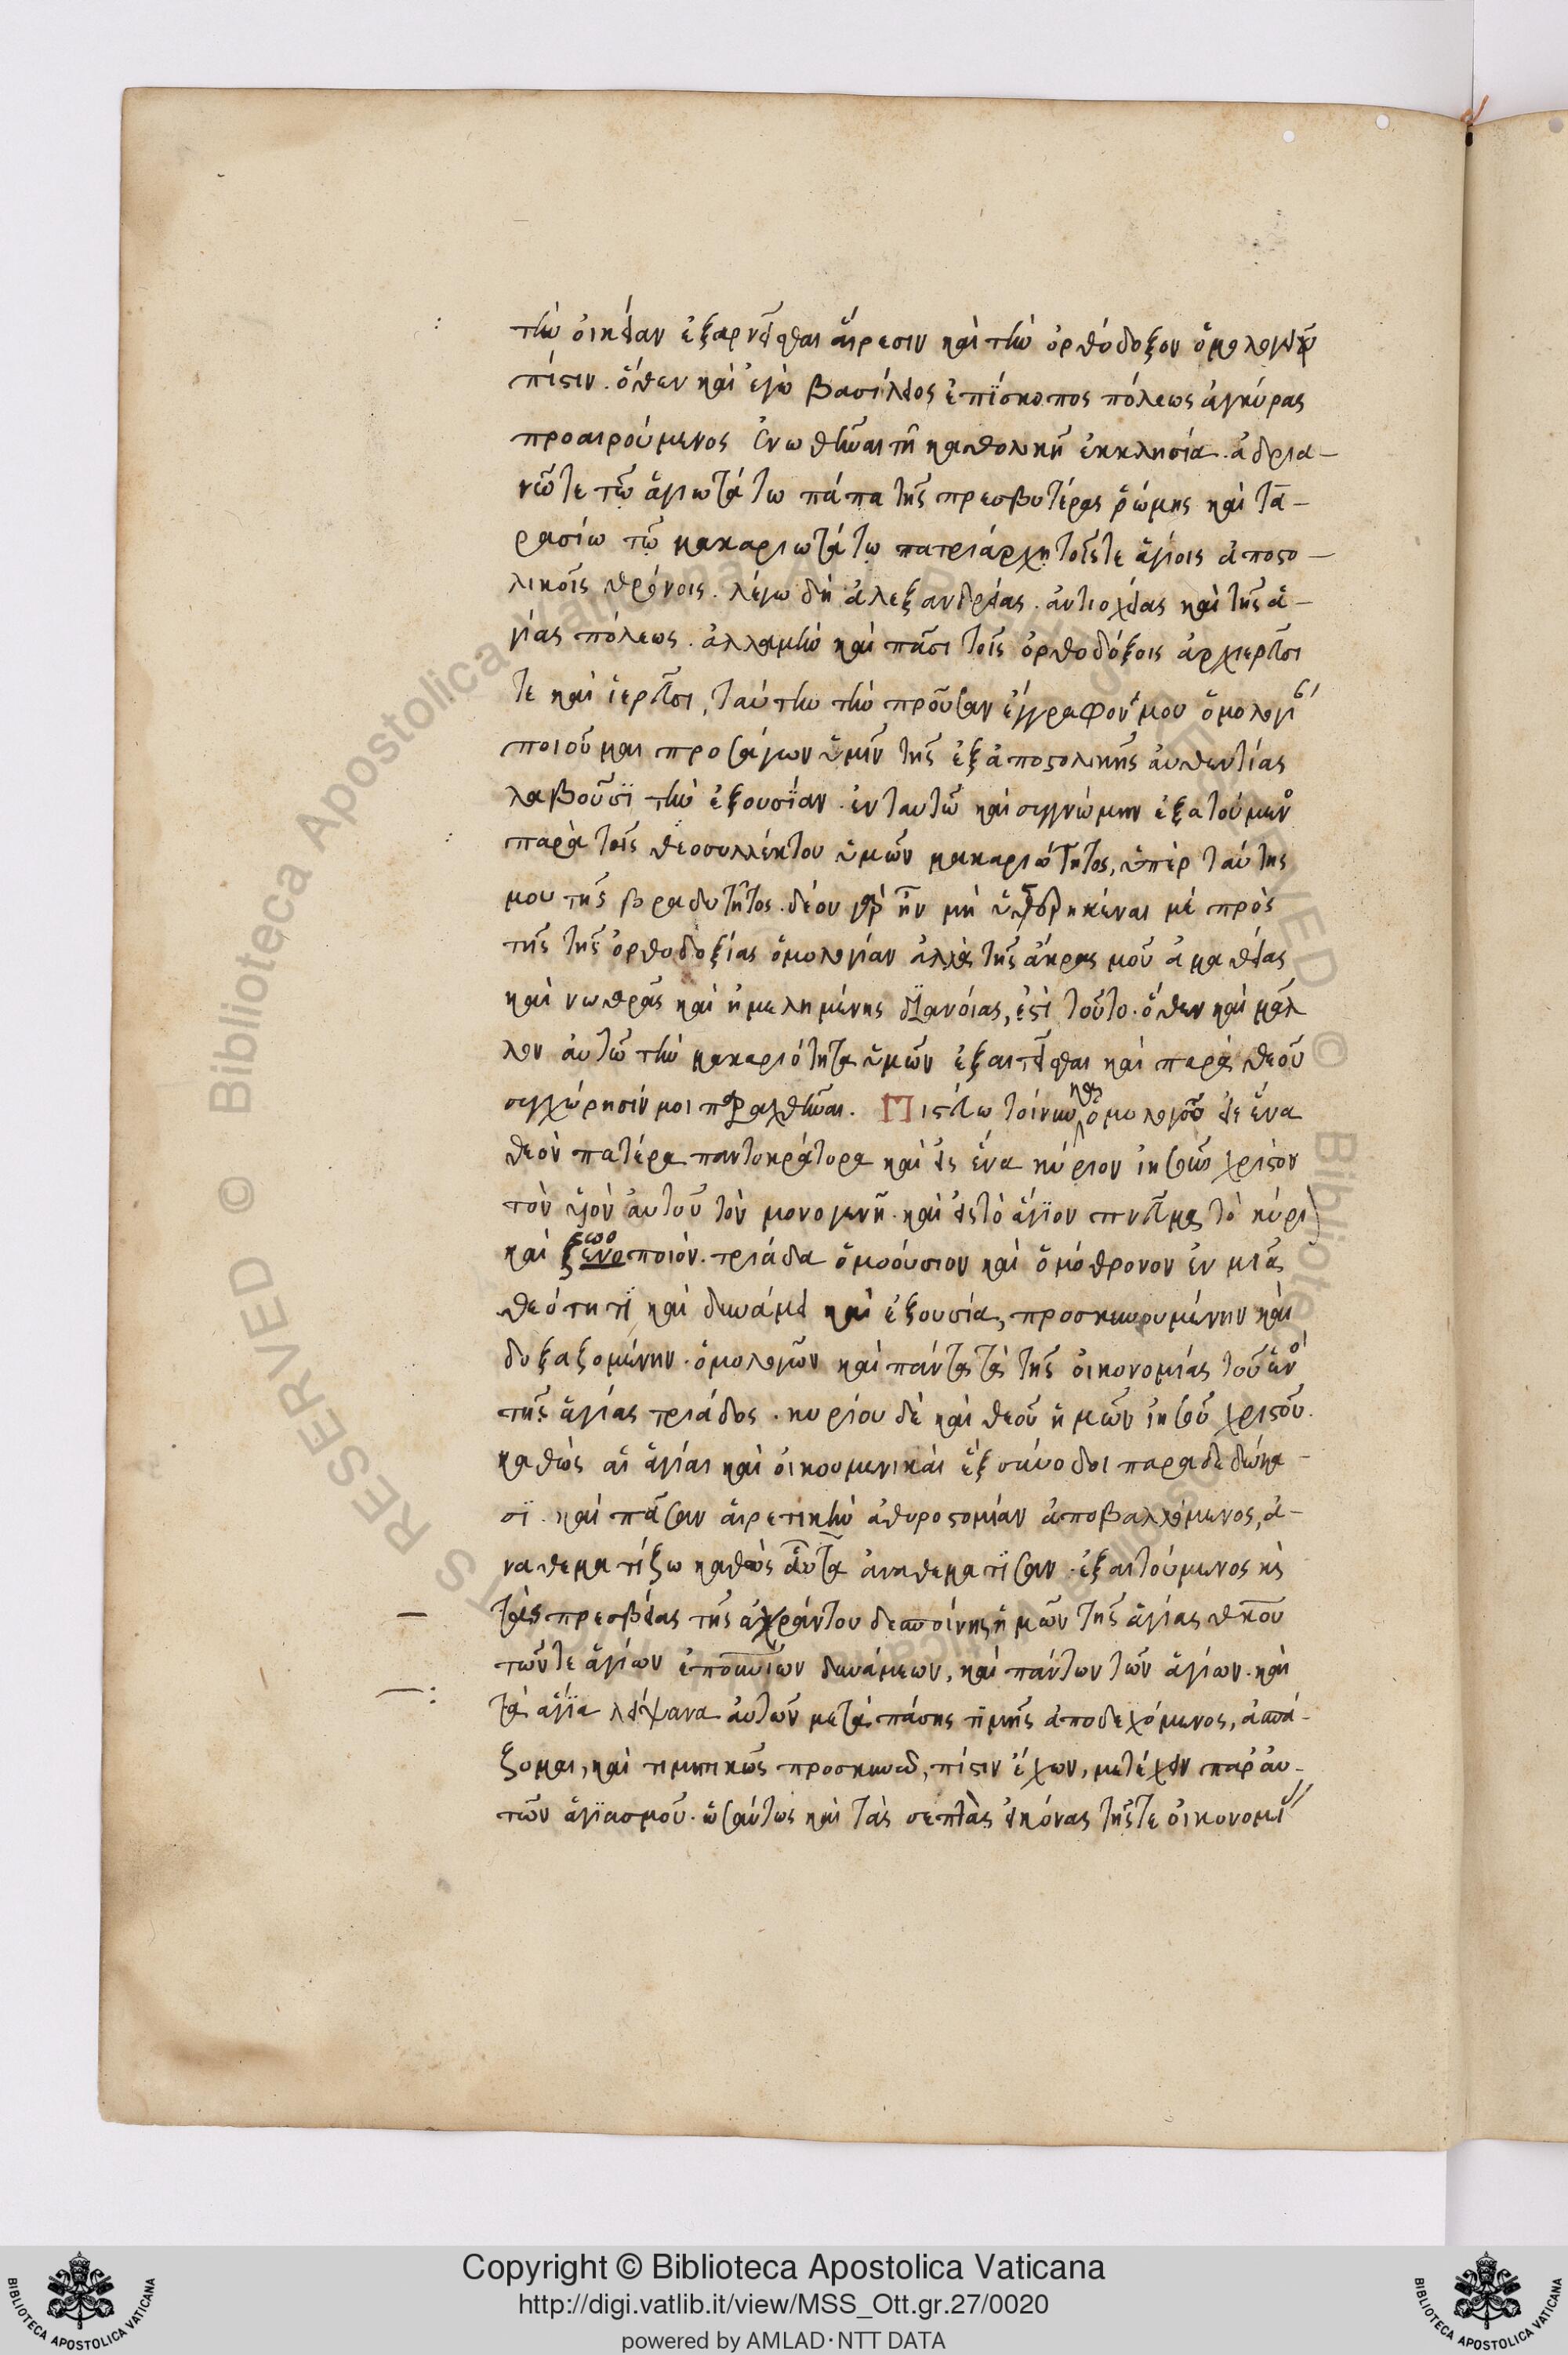 τὴν οἰκείαν ἐξαρνεῖσθαι αἵρεσιν καὶ τὴν ὀρθόδοξον ὁμολογεῖν
πίστιν. ὅθεν καὶ ἐγὼ βασίλειος ἐπίσκοπος πόλεως ἀγκύρας
προαιρούμενος ἑνωθῆναι τῆ καθολικῆ ἐκκλησία. ἀδρια–
νῶ τε τῶ ἁγιωτάτω πάπα τῆς πρεσβυτέρας ῥώμης καὶ τα–
ρασίω τῶ μακαριωτάτω πατριάρχη τοῖς τε ἁγίοις ἀποστο–
λικοῖς θρόνοις. λέγω δὴ ἀλεξανδρείας. ἀντιοχείας καὶ τῆς ἁ–
γίας πόλεως. ἀλλαμὴν καὶ πᾶσι τοῖς ὀρθοδόξοις ἀρχιερεῦσι
τε καὶ ἱερεῦσι, ταύτην τὴν προῦσαν ἔγγραφόν μου ὁμολογί
ποιοῦμαι προσάγων ὑμῖν τῆς ἐξ ἀποστολικῆς αὐθεντίας
λαβοῦσϊ τὴν ἐξουσίαν. ἐν ταυτῶ καὶ συγνώμην ἐξατούμενο
παρὰ τοῖς θεοσυλλέκτου ὑμῶν μακαριότητος, ὑπὲρ ταύτης
μου τῆς βραδυτῆτος. δέον γὰρ ἦν μὴ ὑστερηκέναι μὲ πρὸς
τῆς τῆς ὀρθοδοξίας ὁμολογίαν ἀλλὰ τῆς ἄκρας μοῦ ἀμαθείας
καὶ νωθρᾶς καὶ ἠμελημένης διανοίας, ἐστὶ τοῦτο. ὅθεν καὶ μᾶλ
λον αὐτῶ τὴν μακαριότητα ὑμῶν ἐξαιτεῖσθαι καὶ παρὰ θεοῦ
συγχώρησίν μοι παρασχθῆναι. Πιστεύω τοίνυν καὶ ὁμολογῶ εἰς ἕνα
θεὸν πατέρα παντοκράτορα καὶ εἰς ἕνα κύριον ἰησοῦν χριστὸν
τὸν υἱὸν αὐτοῦ τὸν μονογενῆ. καὶ εἰς τὸ ἅγιον πνεῦμα τὸ κύρι
καὶ ζωοποιόν. τριάδα ὁμοούσιον καὶ ὁμόθρονον ἐν μιᾶ
θεότητϊ καὶ δυνάμει καὶ ἐξουσία, προσκυνουμένην καὶ
δοξαζομένην. ὁμολογῶν καὶ πάντα τὰ τῆς οἰκονομίας τοῦ ἑνὸ
τῆς ἁγίας τριάδος. κυρίου δὲ καὶ θεοῦ ἡμῶν ἰησοῦ χριστοῦ.
καθὼς αἱ ἁγίαι καὶ οἰκουμενικαὶ ἓξ σύνοδοι παραδεδώκα–
σϊ. καὶ πᾶσαν αἱρετικὴν ἀθυροστομίαν ἀποβαλλόμενος, ἀ–
ναθεματίζω καθὼς αὐτὰ ἀναθεμάτϊσαν. ἐξαιτούμενος κὶ
τὰς πρεσβείας τῆς ἀχράντου δεσποίνης ἡμῶν τῆς ἁγίας θκου
τῶν τε ἁγίων ἐπουνίων δυνάμεων, καὶ πάντων τῶν ἁγίων. καὶ
τὰ ἅγϊα λείψανα αὐτῶν μετὰ πάσης τϊμῆς ἀποδεχόμενος, ἀσπά–
ζομαι, καὶ τιμητικῶς προσκυνῶ, πίστιν ἔχων, μετέχειν παρ' αὐ–
τῶν ἁγϊασμοῦ. ὡσαύτως καὶ τὰς σεπτὰς εἰκόνας τῆς τε οἰκονομί
Copyright © Biblioteca Apostolica Vaticana
http://digi.vatlib.it/view/MSS_Ott.gr.27/0020
powered by AMLAD·NTT DATA